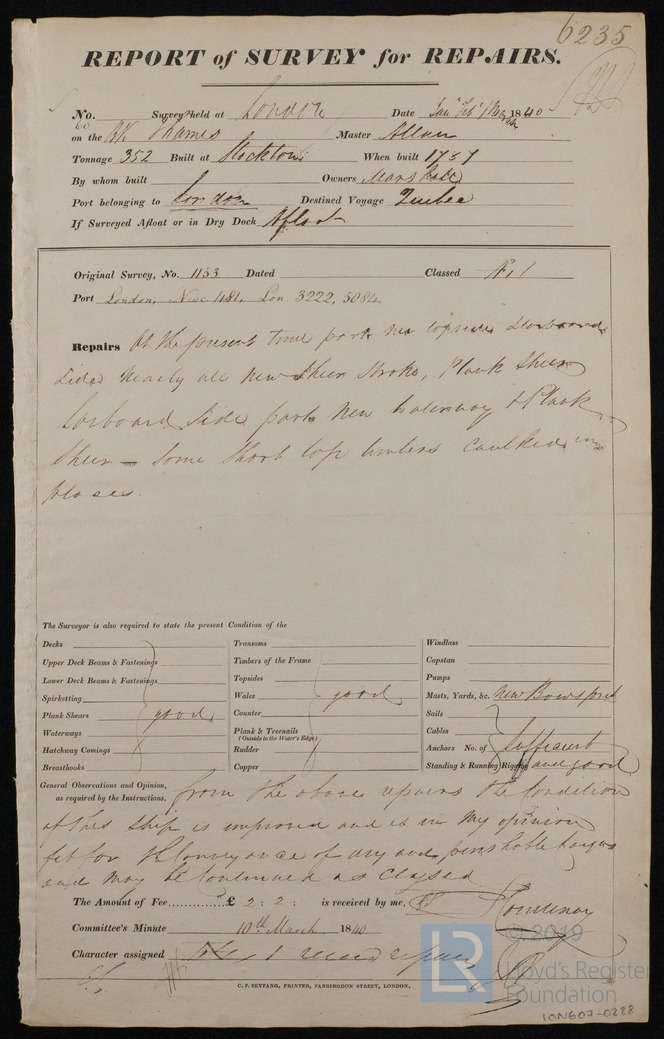 6235
REPORT of SURVEY for REPAIRS.
No. Survey held at London Date Jany Feby & March 1840
on the Bk Thames Master Allan
Tonnage 352 Built at Stockton When built
By whom built Owners Marshall
Port belonging to London Destined Voyage Quebec
If Surveyed Afloat or in Dry Dock Afloat
Original Survey, No. 1153 Dated Classed Æ 1
Port London, Nwc 481, Lon 3222, 5084.
Repairs At the present time part new topsides Starboard
Side nearly all new Sheer Stroke, Plank Sheer
Larboard Side part new waterway & Plank
Sheer - some short top timbers caulked in
places.
The Surveyor is also required to state the present Condition of the
Decks
Upper Deck Beams & Fastenings
Lower Deck Beams & Fastenings
Spirketting
Plank Shears good
Waterways
Hatchway Comings
Breasthooks
Transoms
Timbers of the Frame
Topsides
Wales good
Counter
Plank & Treenails
(Outside to the Water's Edge)
Rudder
Copper
Windlass
Capstan
Pumps
Masts, Yards, &c. New Bowsprit
Sails
Cables
Anchors No. of Sufficient
Standing & Running Rigging and good
General Observations and Opinion,
as required by the Instructions, From the above repairs the condition
of this Ship is improved and is in my opinion
fit for the Conveyance of dry and perishable cargoes
and may be Continued as Classed
The Amount of Fee............£ 2: 2: is received by me, Courtenay
Committee's Minute 10th March 1840
Character assigned Æ 1 record repairs
C. F. SEYFANG, PRINTER, FARRINGDON STREET, LONDON.
© 2019
LR
Lloyd's Register
Foundation
LON607-0288